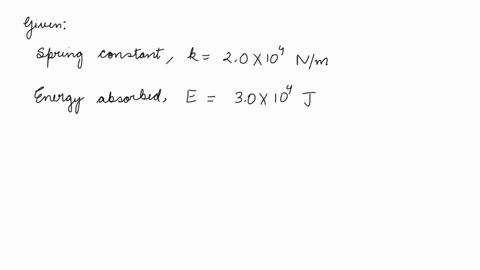 Given:
Spring constant, k = 2.0 X 10⁴ N/m
Energy absorbed, E = 3.0 X 10⁴ J